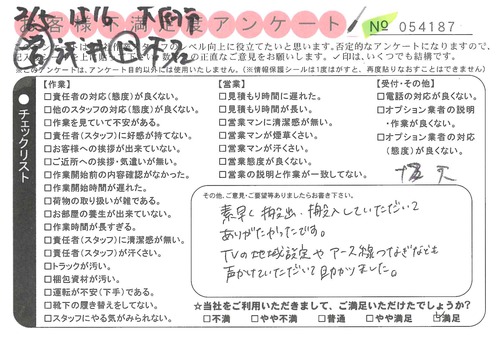 お客様不満足度アンケート
No 054187
レベル向上に役立てたいと思います。否定的なアンケートになりますので、
の正直なご意見をお願いします。✓印は、いくつでも結構です。
※このアンケートは、アンケート目的以外には使用いたしません。(※情報保護シールは1度はがすと、再度貼りなおすことはできません)
チェックリスト
【作業】
□責任者の対応(態度)が良くない。
□他のスタッフの対応(態度)が良くない。
□作業を見ていて不安がある。
□責任者(スタッフ)に好感が持てない。
□お客様への挨拶が出来ていない。
□ご近所への挨拶・気遣いが無い。
□作業開始前の内容確認がなかった。
□作業開始時間が遅れた。
□荷物の取り扱いが雑である。
□お部屋の養生が出来ていない。
□作業時間が長すぎる。
□責任者(スタッフ)に清潔感が無い。
□責任者(スタッフ)が汗くさい。
□トラックが汚い。
□梱包資材が汚い。
□運転が不安(下手)である。
□靴下の履き替えをしてない。
□スタッフにやる気がみられない。
【営業】
□見積もり時間に遅れた。
□見積もり時間が長い。
□営業マンに清潔感が無い。
□営業マンが煙草くさい。
□営業マンが汗くさい。
□営業態度が良くない。
□営業の説明と作業が一致してない。
【受付・その他】
□電話の対応が良くない。
□オプション業者の説明
・作業が良くない。
□オプション業者の対応
(態度)が良くない。
その他、ご意見・ご要望等ありましたらお書き下さい。
素早く搬出、搬入していただいて
ありがたかったです。
TVの地域設定やアース線つなぎなども
声かけていただいて助かりました。
☆当社をご利用いただきまして、ご満足いただけたでしょうか?
□不満 □やや不満 □普通 □やや満足 ☑満足